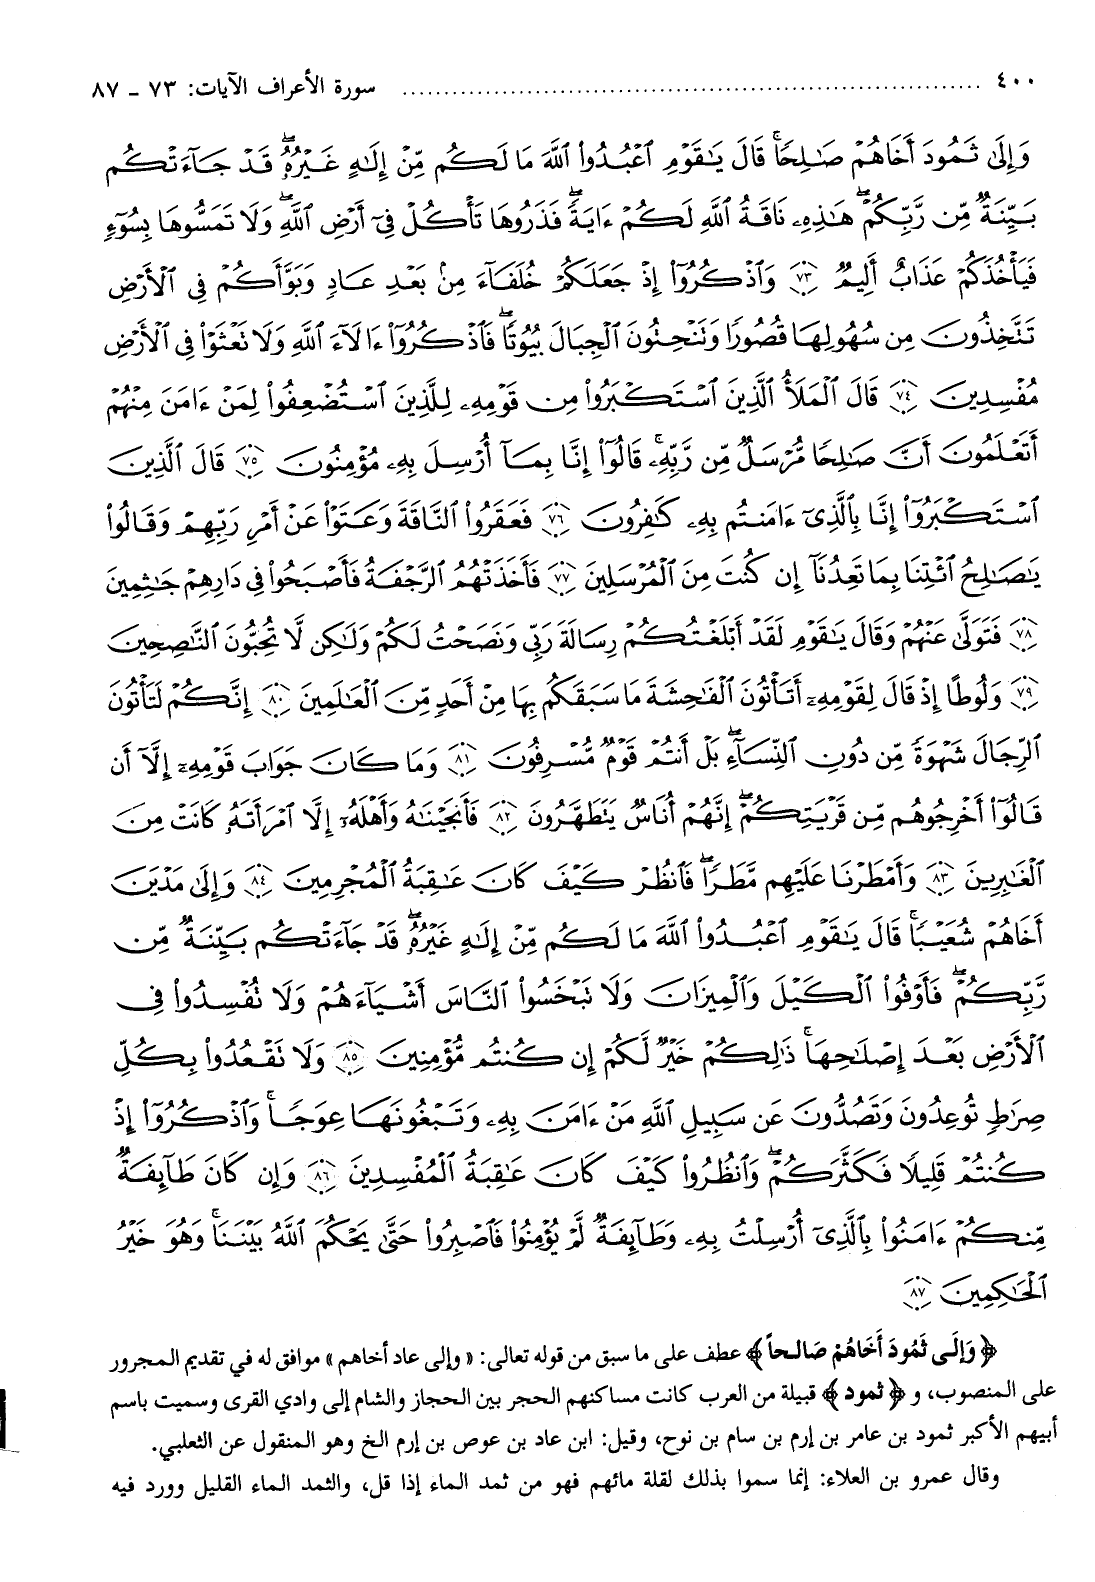 ٤٠٠ ........................................................................ سورة الأعراف الآيات: ٧٣ - ٨٧
وَإِلَىٰ ثَمُودَ أَخَاهُمْ صَٰلِحًا ۚ قَالَ يَٰقَوْمِ ٱعْبُدُوا۟ ٱللَّهَ مَا لَكُم مِّنْ إِلَٰهٍ غَيْرُهُۥ ۖ قَدْ جَآءَتْكُم
بَيِّنَةٌ مِّن رَّبِّكُمْ ۖ هَٰذِهِۦ نَاقَةُ ٱللَّهِ لَكُمْ ءَايَةً ۖ فَذَرُوهَا تَأْكُلْ فِىٓ أَرْضِ ٱللَّهِ ۖ وَلَا تَمَسُّوهَا بِسُوٓءٍ
فَيَأْخُذَكُمْ عَذَابٌ أَلِيمٌ ٧٣ وَٱذْكُرُوٓا۟ إِذْ جَعَلَكُمْ خُلَفَآءَ مِنۢ بَعْدِ عَادٍ وَبَوَّأَكُمْ فِى ٱلْأَرْضِ
تَتَّخِذُونَ مِن سُهُولِهَا قُصُورًا وَتَنْحِتُونَ ٱلْجِبَالَ بُيُوتًا ۖ فَٱذْكُرُوٓا۟ ءَالَآءَ ٱللَّهِ وَلَا تَعْثَوْا۟ فِى ٱلْأَرْضِ
مُفْسِدِينَ ٧٤ قَالَ ٱلْمَلَأُ ٱلَّذِينَ ٱسْتَكْبَرُوا۟ مِن قَوْمِهِۦ لِلَّذِينَ ٱسْتُضْعِفُوا۟ لِمَنْ ءَامَنَ مِنْهُمْ
أَتَعْلَمُونَ أَنَّ صَٰلِحًا مُّرْسَلٌ مِّن رَّبِّهِۦ ۚ قَالُوٓا۟ إِنَّا بِمَآ أُرْسِلَ بِهِۦ مُؤْمِنُونَ ٧٥ قَالَ ٱلَّذِينَ
ٱسْتَكْبَرُوٓا۟ إِنَّا بِٱلَّذِىٓ ءَامَنتُم بِهِۦ كَٰفِرُونَ ٧٦ فَعَقَرُوا۟ ٱلنَّاقَةَ وَعَتَوْا۟ عَنْ أَمْرِ رَبِّهِمْ وَقَالُوا۟
يَٰصَٰلِحُ ٱئْتِنَا بِمَا تَعِدُنَآ إِن كُنتَ مِنَ ٱلْمُرْسَلِينَ ٧٧ فَأَخَذَتْهُمُ ٱلرَّجْفَةُ فَأَصْبَحُوا۟ فِى دَارِهِمْ جَٰثِمِينَ
٧٨ فَتَوَلَّىٰ عَنْهُمْ وَقَالَ يَٰقَوْمِ لَقَدْ أَبْلَغْتُكُمْ رِسَالَةَ رَبِّى وَنَصَحْتُ لَكُمْ وَلَٰكِن لَّا تُحِبُّونَ ٱلنَّٰصِحِينَ
٧٩ وَلُوطًا إِذْ قَالَ لِقَوْمِهِۦٓ أَتَأْتُونَ ٱلْفَٰحِشَةَ مَا سَبَقَكُم بِهَا مِنْ أَحَدٍ مِّنَ ٱلْعَٰلَمِينَ ٨٠ إِنَّكُمْ لَتَأْتُونَ
ٱلرِّجَالَ شَهْوَةً مِّن دُونِ ٱلنِّسَآءِ ۚ بَلْ أَنتُمْ قَوْمٌ مُّسْرِفُونَ ٨١ وَمَا كَانَ جَوَابَ قَوْمِهِۦٓ إِلَّآ أَن
قَالُوٓا۟ أَخْرِجُوهُم مِّن قَرْيَتِكُمْ ۖ إِنَّهُمْ أُنَاسٌ يَتَطَهَّرُونَ ٨٢ فَأَنجَيْنَٰهُ وَأَهْلَهُۥٓ إِلَّا ٱمْرَأَتَهُۥ كَانَتْ مِنَ
ٱلْغَٰبِرِينَ ٨٣ وَأَمْطَرْنَا عَلَيْهِم مَّطَرًا ۖ فَٱنظُرْ كَيْفَ كَانَ عَٰقِبَةُ ٱلْمُجْرِمِينَ ٨٤ وَإِلَىٰ مَدْيَنَ
أَخَاهُمْ شُعَيْبًا ۚ قَالَ يَٰقَوْمِ ٱعْبُدُوا۟ ٱللَّهَ مَا لَكُم مِّنْ إِلَٰهٍ غَيْرُهُۥ ۖ قَدْ جَآءَتْكُم بَيِّنَةٌ مِّن
رَّبِّكُمْ ۖ فَأَوْفُوا۟ ٱلْكَيْلَ وَٱلْمِيزَانَ وَلَا تَبْخَسُوا۟ ٱلنَّاسَ أَشْيَآءَهُمْ وَلَا تُفْسِدُوا۟ فِى
ٱلْأَرْضِ بَعْدَ إِصْلَٰحِهَا ۚ ذَٰلِكُمْ خَيْرٌ لَّكُمْ إِن كُنتُم مُّؤْمِنِينَ ٨٥ وَلَا تَقْعُدُوا۟ بِكُلِّ
صِرَٰطٍ تُوعِدُونَ وَتَصُدُّونَ عَن سَبِيلِ ٱللَّهِ مَنْ ءَامَنَ بِهِۦ وَتَبْغُونَهَا عِوَجًا ۚ وَٱذْكُرُوٓا۟ إِذْ
كُنتُمْ قَلِيلًا فَكَثَّرَكُمْ ۖ وَٱنظُرُوا۟ كَيْفَ كَانَ عَٰقِبَةُ ٱلْمُفْسِدِينَ ٨٦ وَإِن كَانَ طَآئِفَةٌ
مِّنكُمْ ءَامَنُوا۟ بِٱلَّذِىٓ أُرْسِلْتُ بِهِۦ وَطَآئِفَةٌ لَّمْ يُؤْمِنُوا۟ فَٱصْبِرُوا۟ حَتَّىٰ يَحْكُمَ ٱللَّهُ بَيْنَنَا ۚ وَهُوَ خَيْرُ
ٱلْحَٰكِمِينَ ٨٧
﴿ وَإِلَى ثَمُودَ أَخَاهُمْ صَالِحاً ﴾ عطف على ما سبق من قوله تعالى: « وإلى عاد أخاهم » موافق له في تقديم المجرور
على المنصوب، و ﴿ ثمود ﴾ قبيلة من العرب كانت مساكنهم الحجر بين الحجاز والشام إلى وادي القرى وسميت باسم
أبيهم الأكبر ثمود بن عامر بن إرم بن سام بن نوح، وقيل: ابن عاد بن عوص بن إرم الخ وهو المنقول عن الثعلبي.
وقال عمرو بن العلاء: إنما سموا بذلك لقلة مائهم فهو من ثمد الماء إذا قل، والثمد الماء القليل وورد فيه